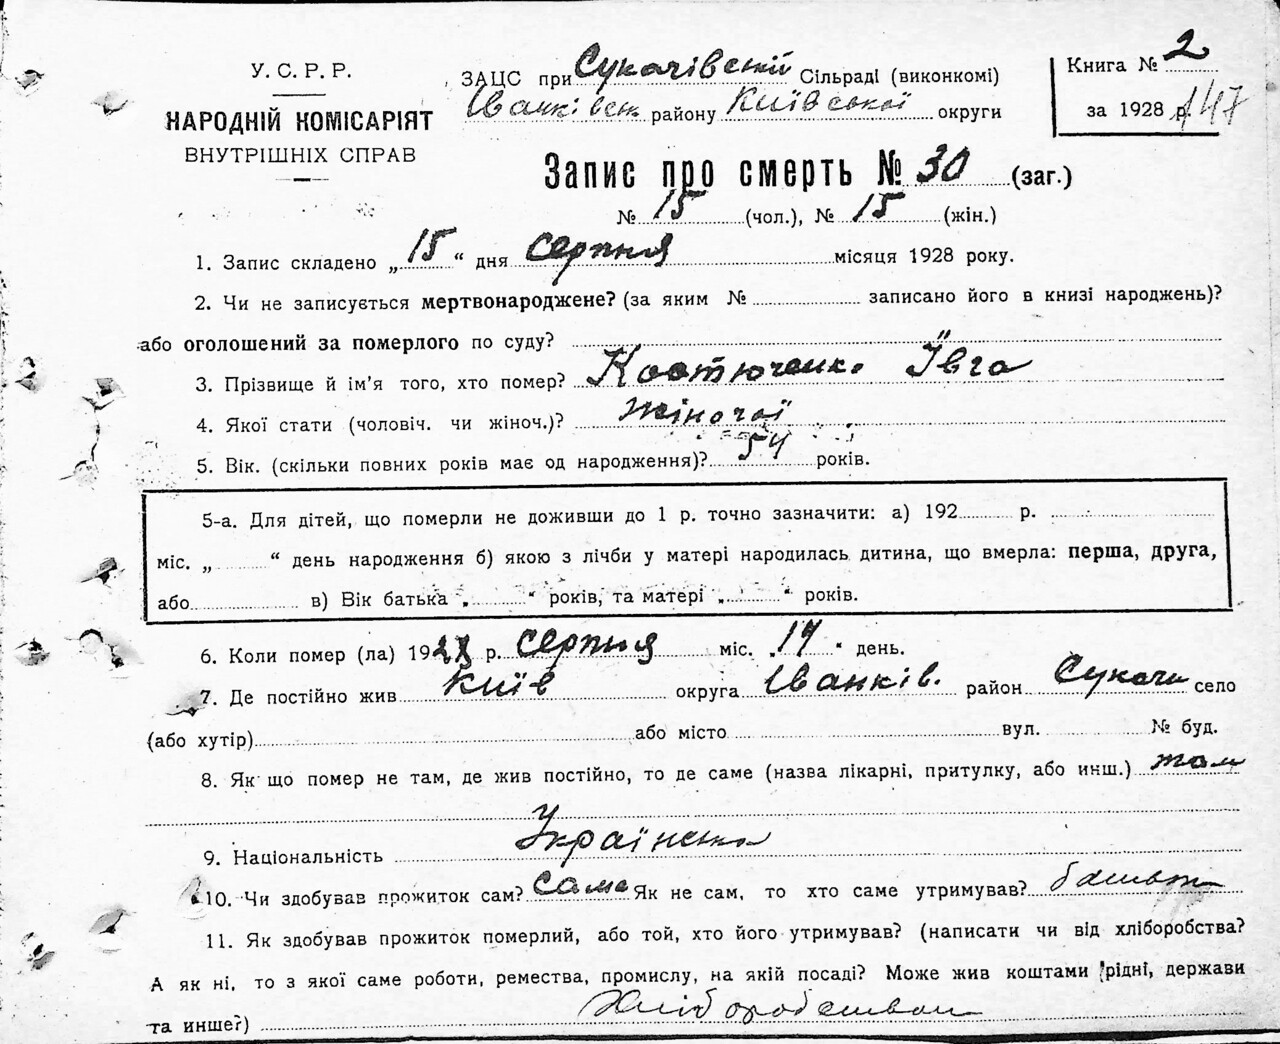 У. С. Р. Р.
НАРОДНІЙ КОМІСАРІЯТ
ВНУТРІШНІХ СПРАВ
ЗАЦС при Сукачівській Сільраді (виконкомі)
Іванківськ району Київської округи
Книга № 2
за 1928 р. 147
Запис про смерть № 30 (заг.)
№ 15 (чол.), № 15 (жін.)
1. Запис складено „ 15 “ дня серпня місяця 1928 року.
2. Чи не записується мертвонароджене? (за яким № записано його в книзі народжень)?
або оголошений за померлого по суду?
3. Прізвище й ім'я того, хто помер? Костюченко Ївга
4. Якої стати (чоловіч. чи жіноч.)? жіночої
5. Вік. (скільки повних років має од народження)? 54 років.
5-а. Для дітей, що померли не доживши до 1 р. точно зазначити: а) 192 р.
міс. „ “ день народження б) якою з лічби у матері народилась дитина, що вмерла: перша, друга,
або в) Вік батька „ “ років, та матері „ “ років.
6. Коли помер (ла) 1928 р. серпня міс. „ 14 “ день.
7. Де постійно жив Київ округа Іванків. район Сукачи село
(або хутір) або місто вул. № буд.
8. Як що помер не там, де жив постійно, то де саме (назва лікарні, притулку, або инш.) там
9. Національність Українська
10. Чи здобував прожиток сам? сама Як не сам, то хто саме утримував?
11. Як здобував прожиток померлий, або той, хто його утримував? (написати чи від хліборобства?
А як ні, то з якої саме роботи, ремества, промислу, на якій посаді? Може жив коштами рідні, держави
та инше?) Хліборобством